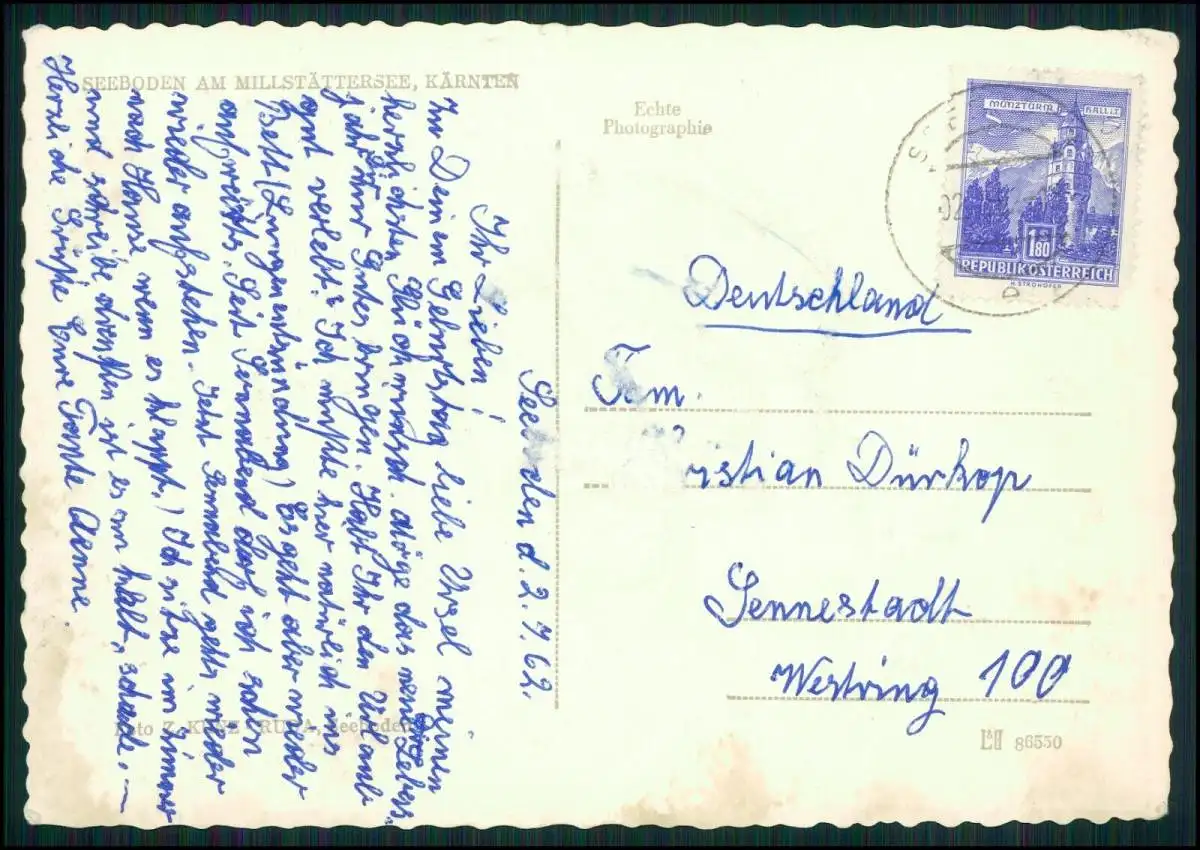 SEEBODEN AM MILLSTÄTTERSEE, KÄRNTEN
Echte
Photographie
MÜNZTURM HALL i.T.
1.80
REPUBLIK ÖSTERREICH
H. STROHOFER
Seeboden d. 2.7.62.
Ihr Lieben!
Zu Deinem Geburtstag liebe Ursel meinen
herzlichsten Glückwunsch. Möge das neue Lebens
jahr Dir nur Gutes bringen. Habt Ihr den Urlaub
gut verlebt? Ich mußte hier natürlich ins
Bett (Lungenentzündung) Es geht aber wieder
aufwärts. Seit Sonnabend darf ich schon
wieder aufstehen. Jetzt Sonnabend gehts wieder
nach Hause wenn es klappt.) Ich sitze im Zimmer
und schreibe draußen ist es so kalt, schade. —
Herzliche Grüße Eure Tante Aenne.
Foto Z. Seeboden
Deutschland
Fam.
ristian Dürkop
Sennestadt
Westring 100
86550